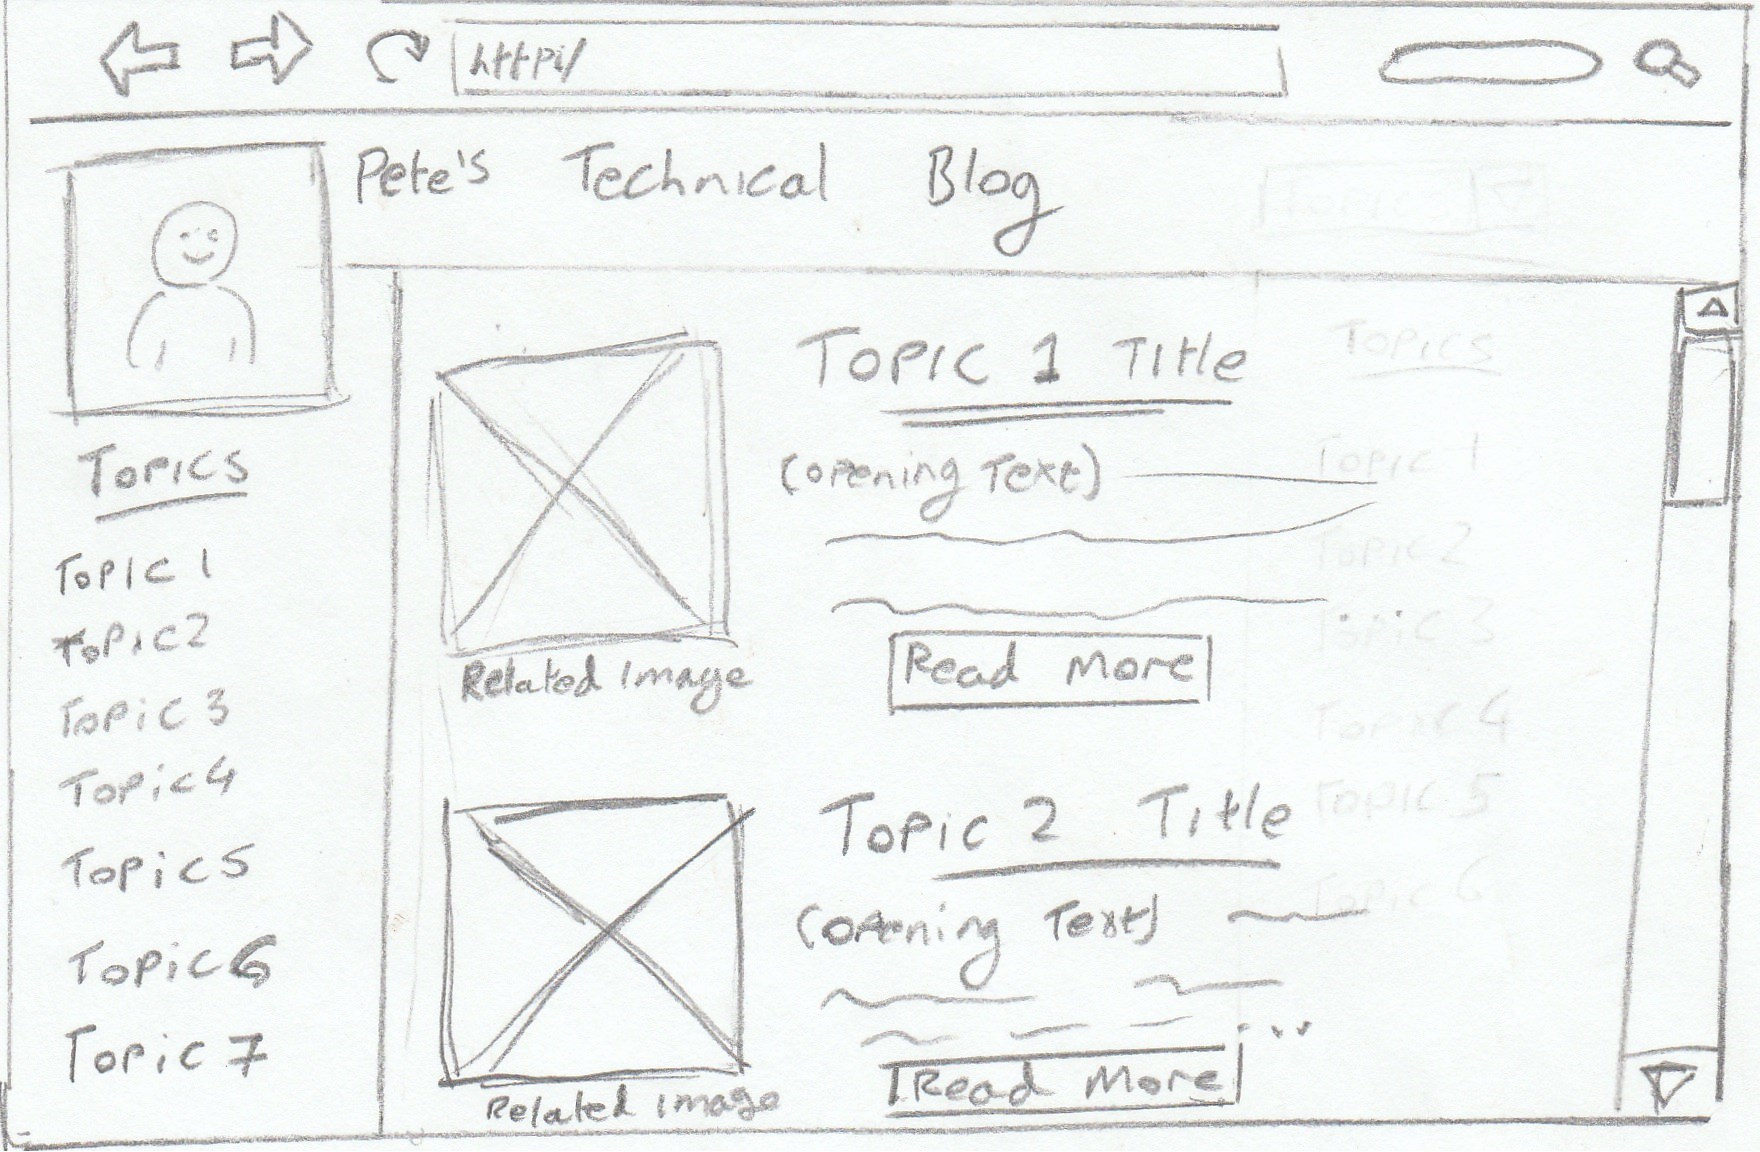 http:/
Pete's Technical Blog
Topics
Topic 1
Topic 2
Topic 3
Topic 4
Topic 5
Topic 6
Topic 7
Topic 1 Title
(opening Text)
Read More
Related Image
Topic 2 Title
(opening Text)
...
Read More
Related Image
Topics
Topics
Topic 1
Topic 2
Topic 3
Topic 4
Topic 5
Topic 6